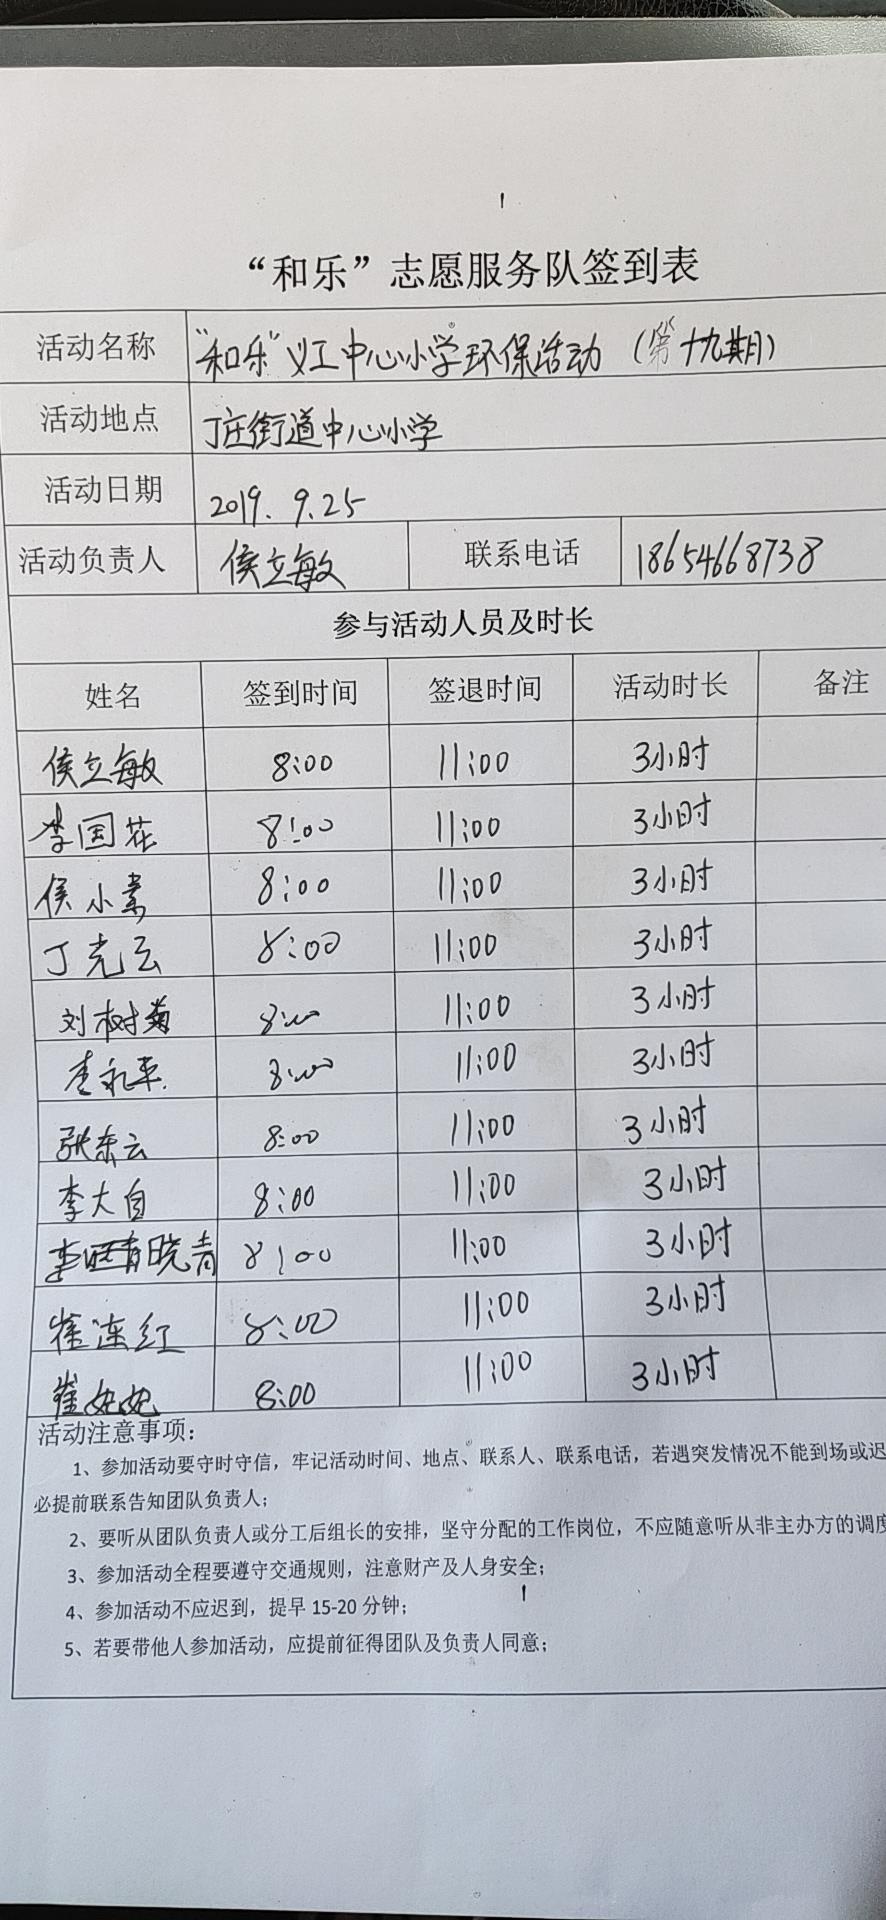 “和乐”志愿服务队签到表
活动名称 “和乐”义工中心小学环保活动（第十九期）
活动地点 丁庄街道中心小学
活动日期 2019.9.25
活动负责人 侯立敏 联系电话 18654668738
参与活动人员及时长
姓名 签到时间 签退时间 活动时长 备注
侯立敏 8:00 11:00 3小时
李国花 8:00 11:00 3小时
侯小素 8:00 11:00 3小时
丁光云 8:00 11:00 3小时
刘树菊 8:00 11:00 3小时
李永平 8:00 11:00 3小时
张东云 8:00 11:00 3小时
李大自 8:00 11:00 3小时
李晓青 8:00 11:00 3小时
崔连红 8:00 11:00 3小时
崔妃妃 8:00 11:00 3小时
活动注意事项：
1、参加活动要守时守信，牢记活动时间、地点、联系人、联系电话，若遇突发情况不能到场或迟
必提前联系告知团队负责人；
2、要听从团队负责人或分工后组长的安排，坚守分配的工作岗位，不应随意听从非主办方的调度
3、参加活动全程要遵守交通规则，注意财产及人身安全；
4、参加活动不应迟到，提早 15-20 分钟；
5、若要带他人参加活动，应提前征得团队及负责人同意；